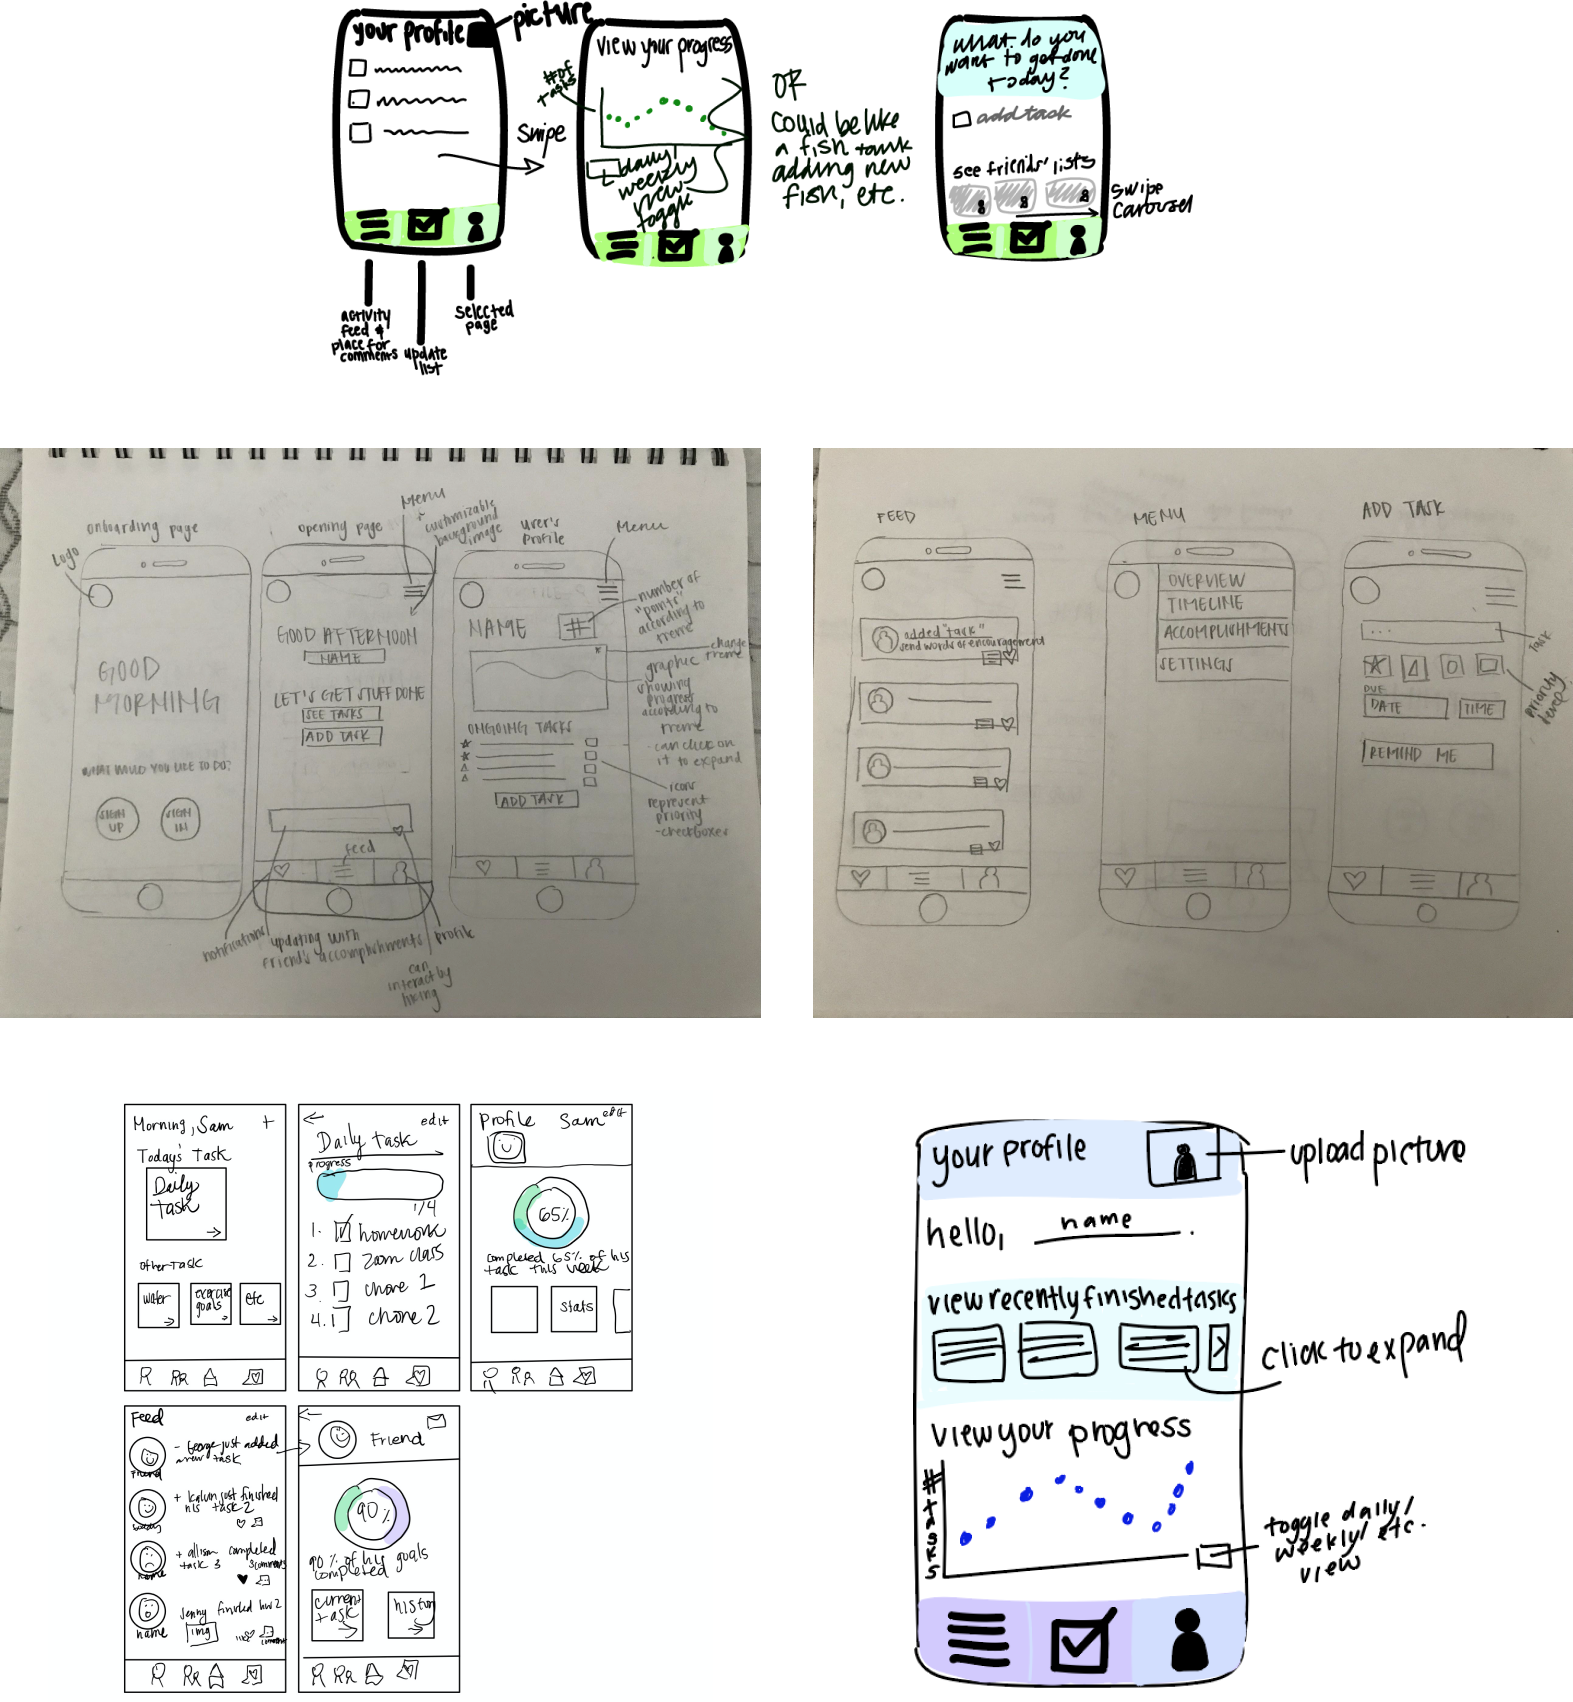 your profile
picture
Swipe
activity
feed &
place for
comments
update
list
selected
page
view your progress
# of
tasks
daily
weekly
view
toggle
OR
could be like
a fish tank
adding new
fish, etc.
what do you
want to get done
today?
add task
see friends' lists
swipe
carousel
onboarding page
Logo
GOOD
MORNING
WHAT WOULD YOU LIKE TO DO?
SIGN
UP
SIGN
IN
opening page
Menu
+
customizable
background
image
GOOD AFTERNOON
NAME
LET'S GET STUFF DONE
SEE TASKS
ADD TASK
feed
notifications
updating with
friend's accomplishments
can
interact by
liking
profile
user's
profile
Menu
NAME
#
number of
"points"
according to
theme
change
theme
graphic
showing
progress
according to
theme
- can click on
it to expand
ONGOING TASKS
ADD TASK
icons
represent
priority
- checkboxes
FEED
added "task"
send words of encouragement
MENU
OVERVIEW
TIMELINE
ACCOMPLISHMENTS
SETTINGS
ADD TASK
...
Task
priority
level
DUE
DATE
TIME
REMIND ME
Morning, Sam +
Today's Task
Daily
Task
other task
water
exercise
goals
etc
edit
Daily task
progress
1/4
1. homework
2. zoom class
3. chore 1
4. chore 2
Profile Sam edit
65%
completed 65% of his
task this week
stats
Feed edit
- George just added
a new task
friend
+ kalvin just finished
his task 2
buddy
+ allison completed
task 3
3 comments
name
Jenny finished hw 2
img
name
comment
Friend
90%
90% of his goals
completed
current
task
history
your profile
upload picture
hello, name.
view recently finished tasks
click to expand
view your progress
# tasks
toggle daily/
weekly/ etc.
view